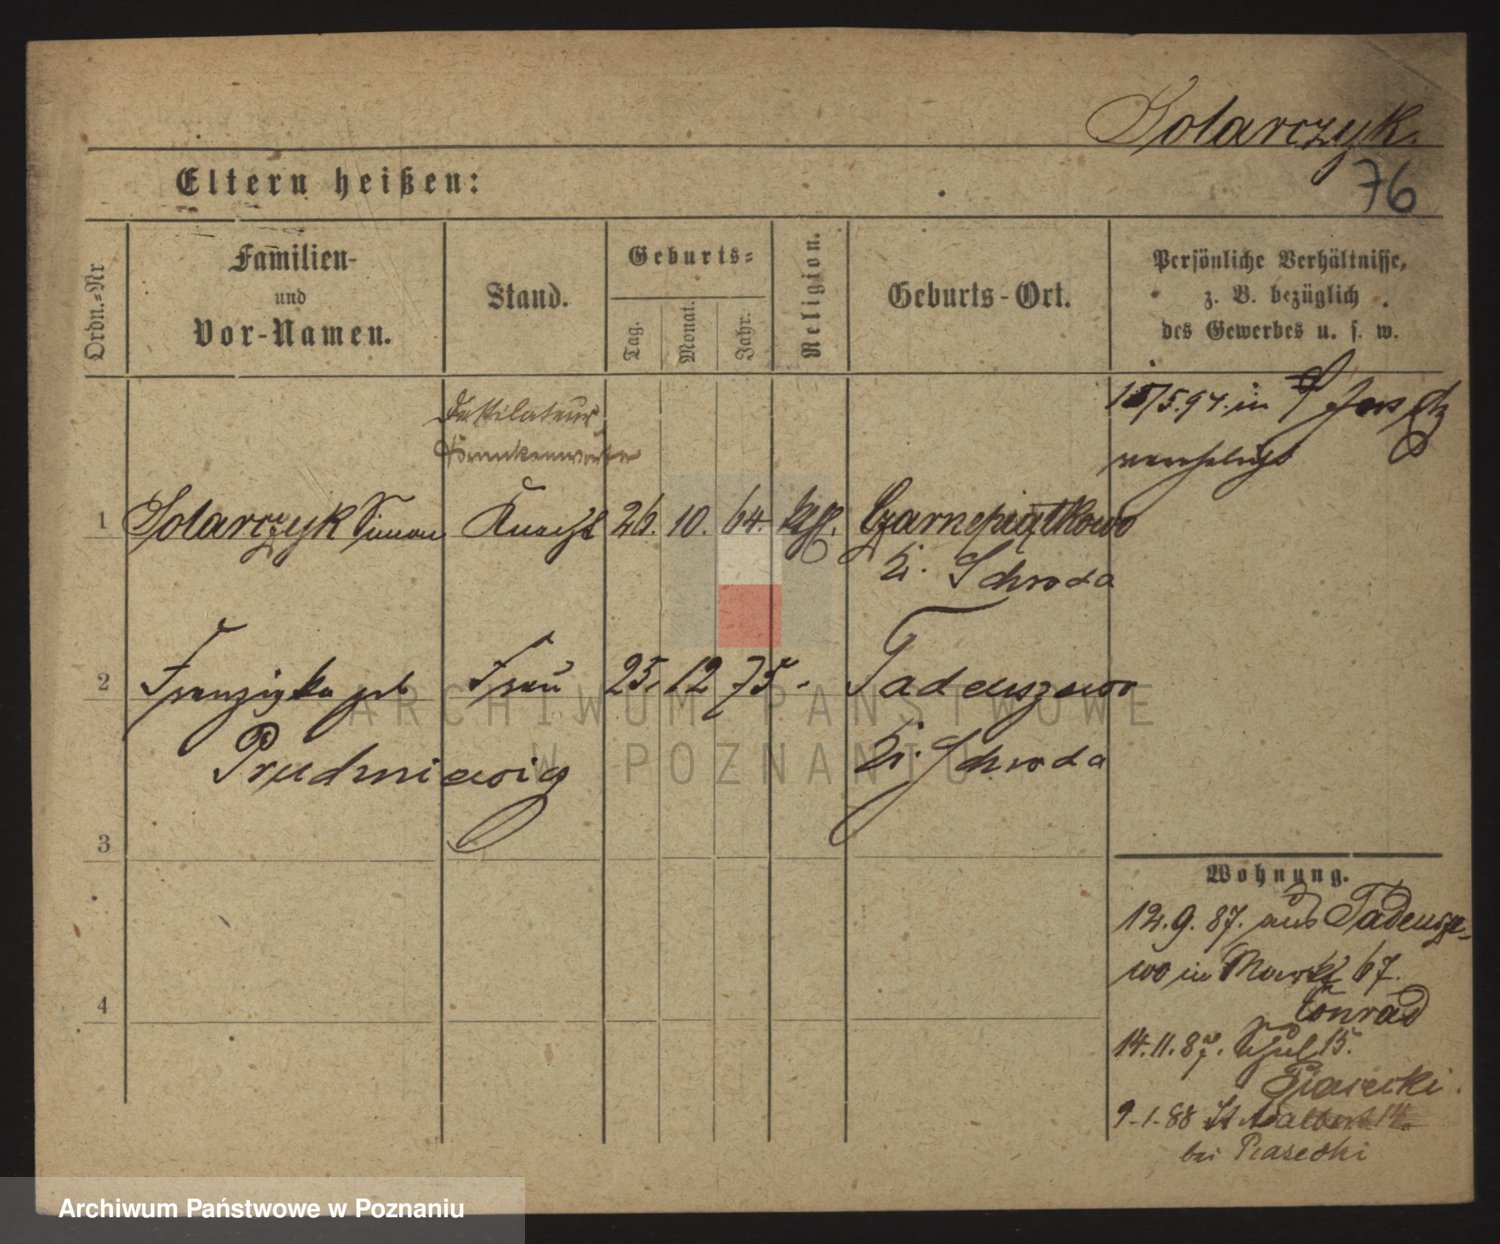 Solarczyk.
76
Eltern heißen:
Ordn.=Nr
Familien-
und
Vor-Namen.
Stand.
Geburts=
Tag.
Monat.
Jahr.
Religion.
Geburts-Ort.
Persönliche Verhältnisse,
z. B. bezüglich
des Gewerbes u. s. w.
Destilateur
Krankenwärter
15/5.97. in
verehelicht
1 Solarczyk Simon Knecht 26. 10. 64. kath. Czarnepiątkowo
Kr. Schroda
2 Franziska geb Frau 25. 12 75. Tadeuszewo
Prudzniewicz Kr. Schroda
3
4
Wohnung.
12.9.87. aus Tadeusze-
wo in Markt 67.
Conrad
14.11.87. Schul 15.
Piasecki.
9.1.88 St Adalbert 14.
bei Piasecki
ARCHIWUM PAŃSTWOWE
W POZNANIU
Archiwum Państwowe w Poznaniu